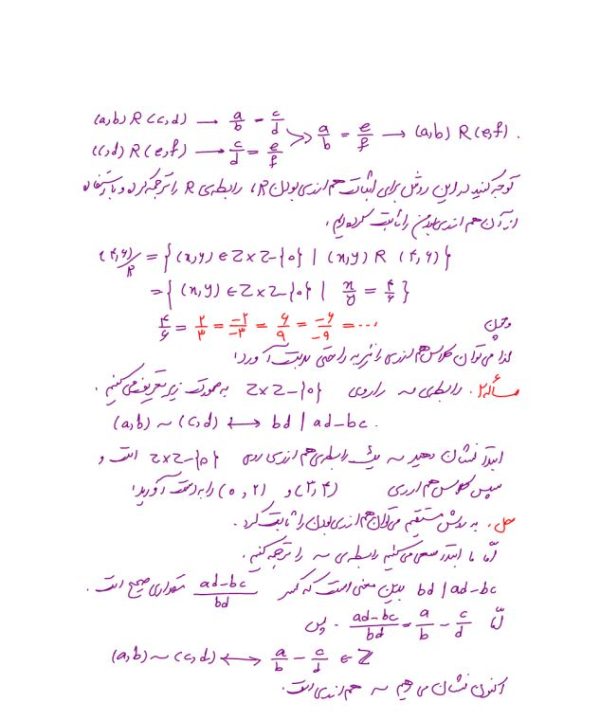 (a,b) R (c,d) → a/b = c/d
(c,d) R (e,f) → c/d = e/f ⟩⟩ a/b = e/f → (a,b) R (e,f) .
توجه کنید در این روش برای اثبات هم ارزی بودن R، رابطه‌ی R را ترجمه کرده و با استفاده
از آن هم ارزی بودن را ثابت کرده ایم.
(۴,۶)/R = { (x,y) ∈ Z×Z-{0} | (x,y) R (۴,۶) }
= { (x,y) ∈ Z×Z-{0} | x/y = ۴/۶ }
وچون ۴/۶ = ۲/۳ = -۲/-۳ = ۶/۹ = -۶/-۹ = ...
لذا می‌توان کلاس هم ارزی را نیز به راحتی بدست آورد!
مسأله ۲. رابطه‌ی ~ را روی Z×Z-{0} به صورت زیر تعریف می‌کنیم.
(a,b) ~ (c,d) ↔ bd | ad-bc .
ابتدا نشان دهید ~ یک رابطه‌ی هم ارزی روی Z×Z-{0} است و
سپس کلاس هم ارزی (۳,۴) و (۰,۲) را به دست آورید!
حل. به روش مستقیم می‌توان هم ارزی بودن را ثابت کرد.
امّا ما ابتدا سعی می‌کنیم رابطه‌ی ~ را ترجمه کنیم.
bd | ad-bc بدین معنی است که کسر (ad-bc)/bd مقداری صحیح است.
امّا (ad-bc)/bd = a/b - c/d . پس
(a,b) ~ (c,d) ↔ a/b - c/d ∈ Z
اکنون نشان می‌دهیم ~ هم ارزی است.